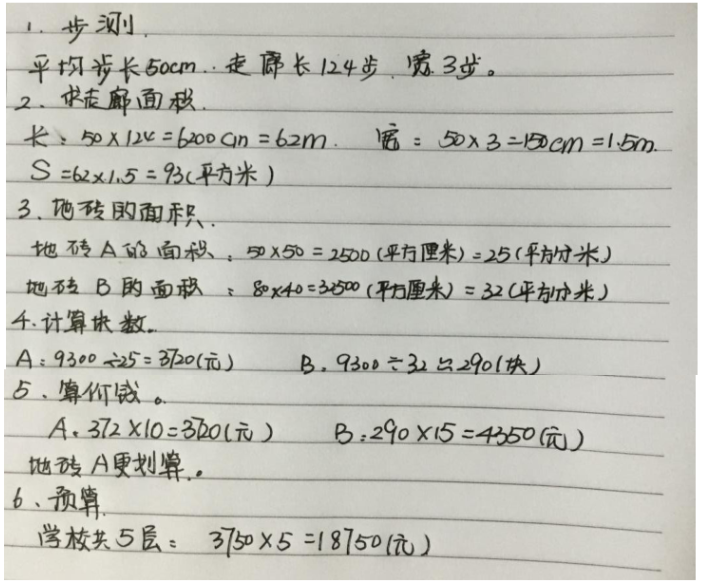 1. 步测.
平均步长50cm. 走廊长124步、宽3步。
2. 求走廊面积.
长：50×124=6200cm=62m. 宽：50×3=150cm=1.5m.
S=62×1.5=93(平方米)
3、地砖的面积.
地砖A的面积：50×50=2500(平方厘米)=25(平方分米)
地砖B的面积：80×40=3200(平方厘米)=32(平方分米)
4.计算块数。
A：9300÷25=3720(元) B. 9300÷32≈290(块)
5、算价钱。
A. 372×10=3720(元) B：290×15=4350(元)
地砖A更划算。
6、预算
学校共5层：3750×5=18750(元)